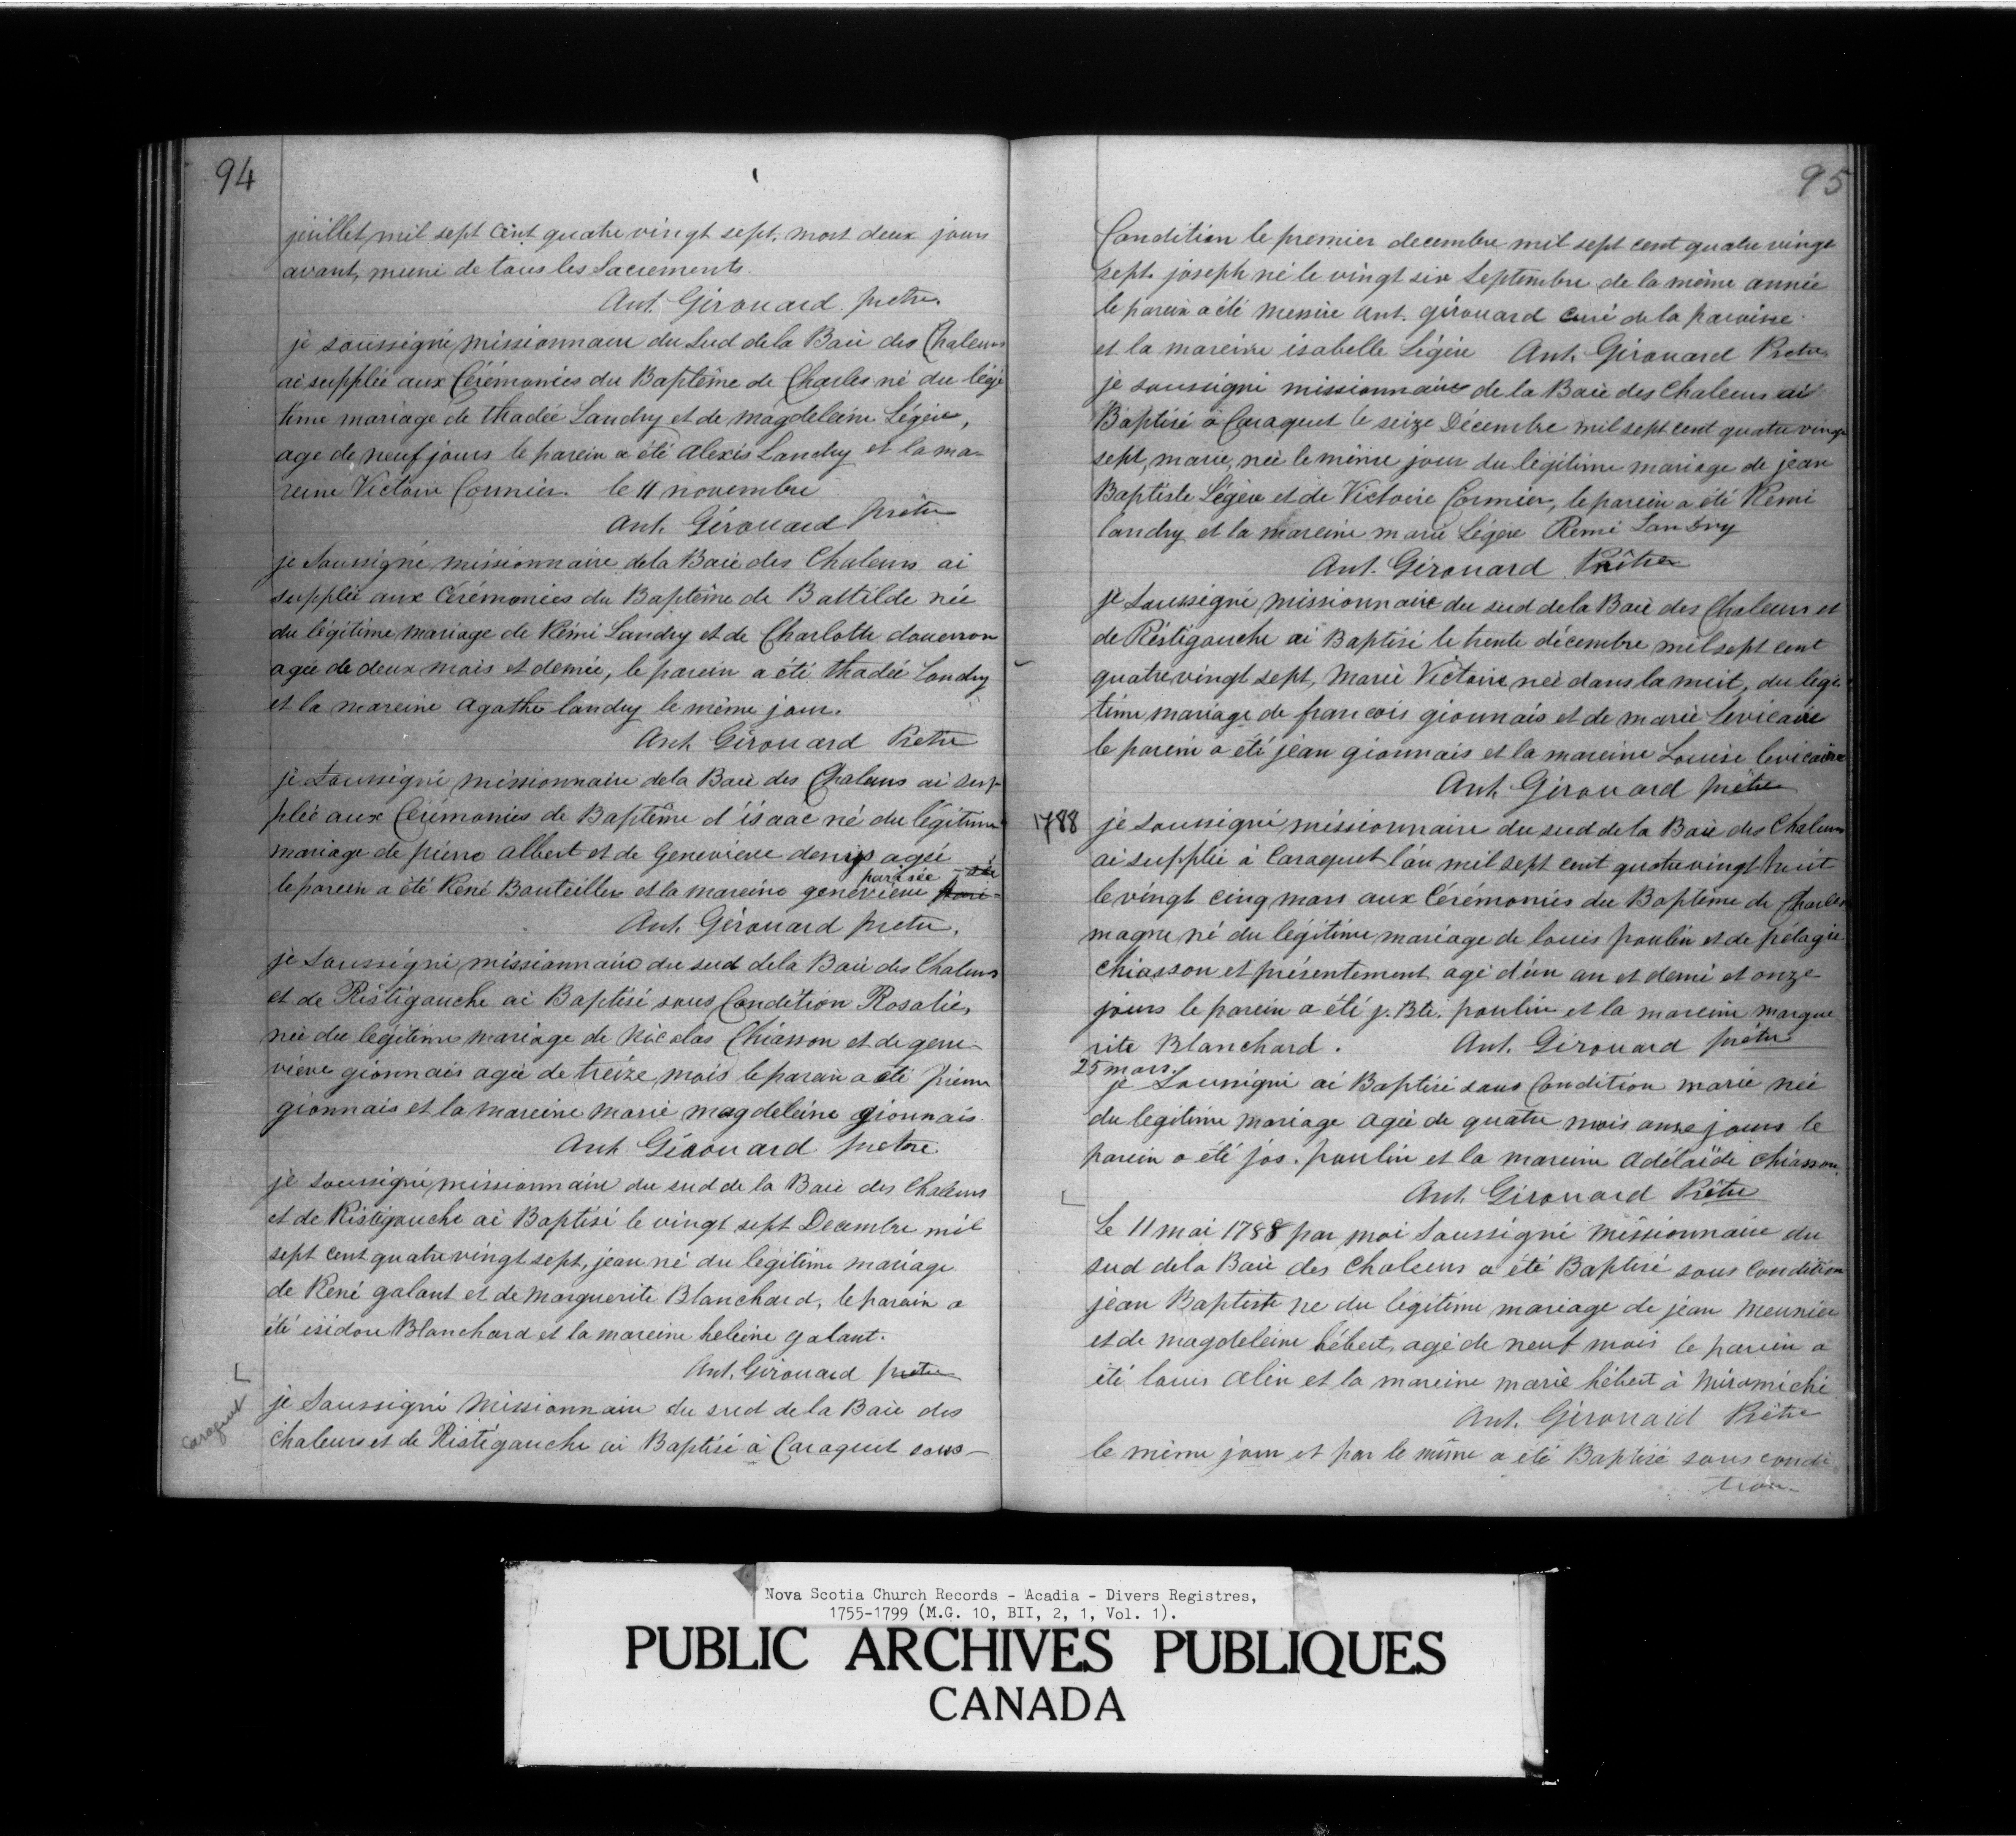 94
juillet mil sept cent quatre vingt sept, mort deux jours
avant, muni de tous les Sacrements.
Ant. Girouard prêtre.
je soussigné missionnaire du Sud de la Baie des Chaleurs
ai supplée aux Cérémonies du Baptême de Charles né du légi
time mariage de thadée Landry et de magdeleine Légère,
age de neuf jours le parein a été Alexis Landry et la ma-
reine Victoire Cormier. le 11 novembre
Ant. Girouard prêtre
je Soussigné missionnaire de la Baie des Chaleurs ai
supplée aux Cérémonies du Baptême de Battilde née
du légitime mariage de Rémi Landry et de Charlotte douerron
agée de deux mois et demie, le parein a été thadée Landry
et la mareine Agathe landry le même jour.
Ant. Girouard Prêtre
je Soussigné missionnaire de la Baie des Chaleurs ai sup-
plée aux Cérémonies de Baptême d'isaac né du légitime
mariage de pierre albert et de Genevieve denys agée
le parein a été René Bouteiller et la mareine geneviève parisée
Ant. Girouard prêtre.
je Soussigné missionnaire du sud de la Baie des Chaleurs
et de Ristigouche ai Baptisé sous Condition Rosalie,
née du légitime mariage de Nicolas Chiasson et de gene-
viève gionnais agée de treize mois le parain a été pierre
gionnais et la mareine marie magdeleine gionnais
Ant. Girouard prêtre
je soussigné missionnaire du sud de la Baie des Chaleurs
et de Ristigouche ai Baptisé le vingt sept Decembre mil
sept cent quatre vingt sept, jean né du légitime mariage
de René galant et de Marguerite Blanchard, le parain a
été isidore Blanchard et la mareine heleine galant.
Ant. Girouard prêtre
Caraquet
je Soussigné Missionnaire du sud de la Baie des
Chaleurs et de Ristigouche ai Baptisé à Caraquet sous-
95
Condition le premier decembre mil sept cent quatre vingt
sept. joseph né le vingt six Septembre de la même année
le parein a été messire Ant. girouard curé de la paroisse
et la mareine isabelle Légère Ant. Girouard Pretre
je soussigné missionnaire de la Baie des Chaleurs ai
Baptisé à Caraquet le seize Décembre mil sept cent quatre vingt
sept, marie, née le même jour du légitime mariage de jean
Baptiste Légère et de Victoire Cormier, le parein a été Remi
landry et la mareine marie Légère Remi Landry
Ant. Girouard Prêtre
je Soussigné missionnaire du sud de la Baie des Chaleurs et
de Réstigouche ai Baptisé le trente décembre mil sept cent
quatre vingt sept, Marie Victoire née dans la nuit, du légi
time mariage de francois gionnais et de marie Levicaire
le parein a été jean gionnais et la mareine Louise levicaire
Ant. Girouard prêtre
1788 je soussigné missionnaire du sud de la Baie des Chaleurs
ai supplée à Caraquet l'an mil sept cent quatre vingt huit
le vingt cinq mars aux Cérémonies du Baptême de Charles
magne né du légitime mariage de louis poulin et de pélagie
Chiasson et présentement agé d'un an et demi et onze
jours le parein a été j. Bte. poulin et la mareine margue
rite Blanchard. Ant. Girouard prêtre
25 mars.
je Soussigné ai Baptisé sous Condition marie née
du legitime mariage agée de quatre mois onze jours le
parein a été jos. poulin et la mareine Adélaïde chiasson.
Ant. Girouard Prêtre
Le 11 mai 1788 par moi Soussigné missionnaire du
sud de la Baie des Chaleurs a été Baptisé sous Condition
jean Baptiste ne du légitime mariage de jean Meunier
et de magdeleine hébert, agé de neuf mois le parein a
été louis alin et la mareine marie hébert à Miramichi
Ant. Girouard Prêtre
le même jour et par le même a été Baptisé sous condi
tion-
Nova Scotia Church Records - Acadia - Divers Registres,
1755-1799 (M.G. 10, BII, 2, 1, Vol. 1).
PUBLIC ARCHIVES PUBLIQUES
CANADA